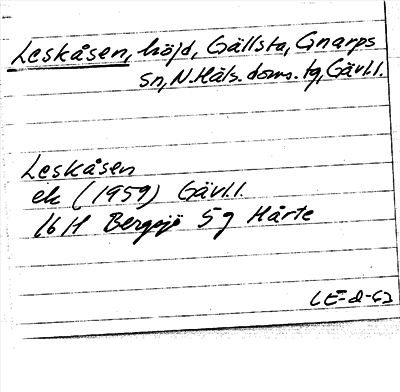 Leskåsen, höjd, Gällsta, Gnarps
sn, N. Häls. doms. tg, Gävl.l.
Leskåsen
ek (1959) Gävl.l.
16 H Bergsjö 5 g Hårte